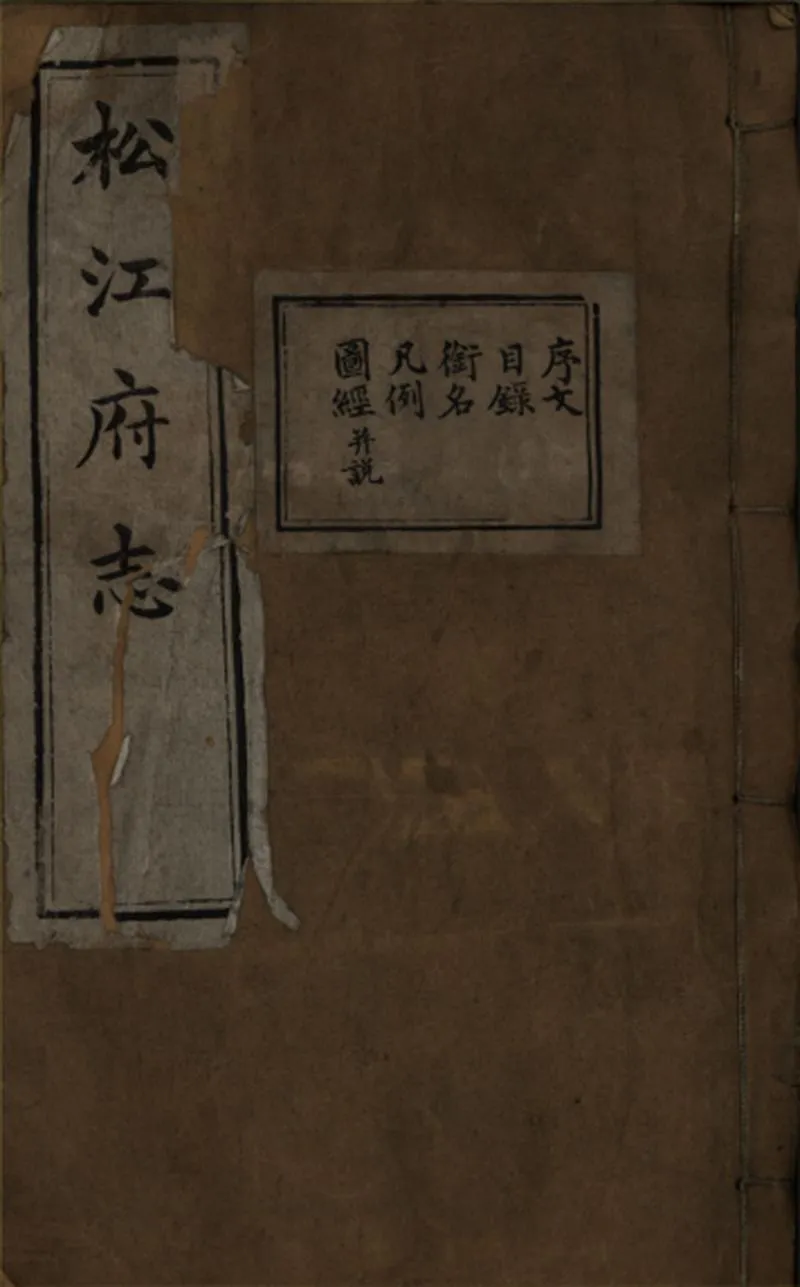 松江府志
序文
目錄
銜名
凡例
圖經并説